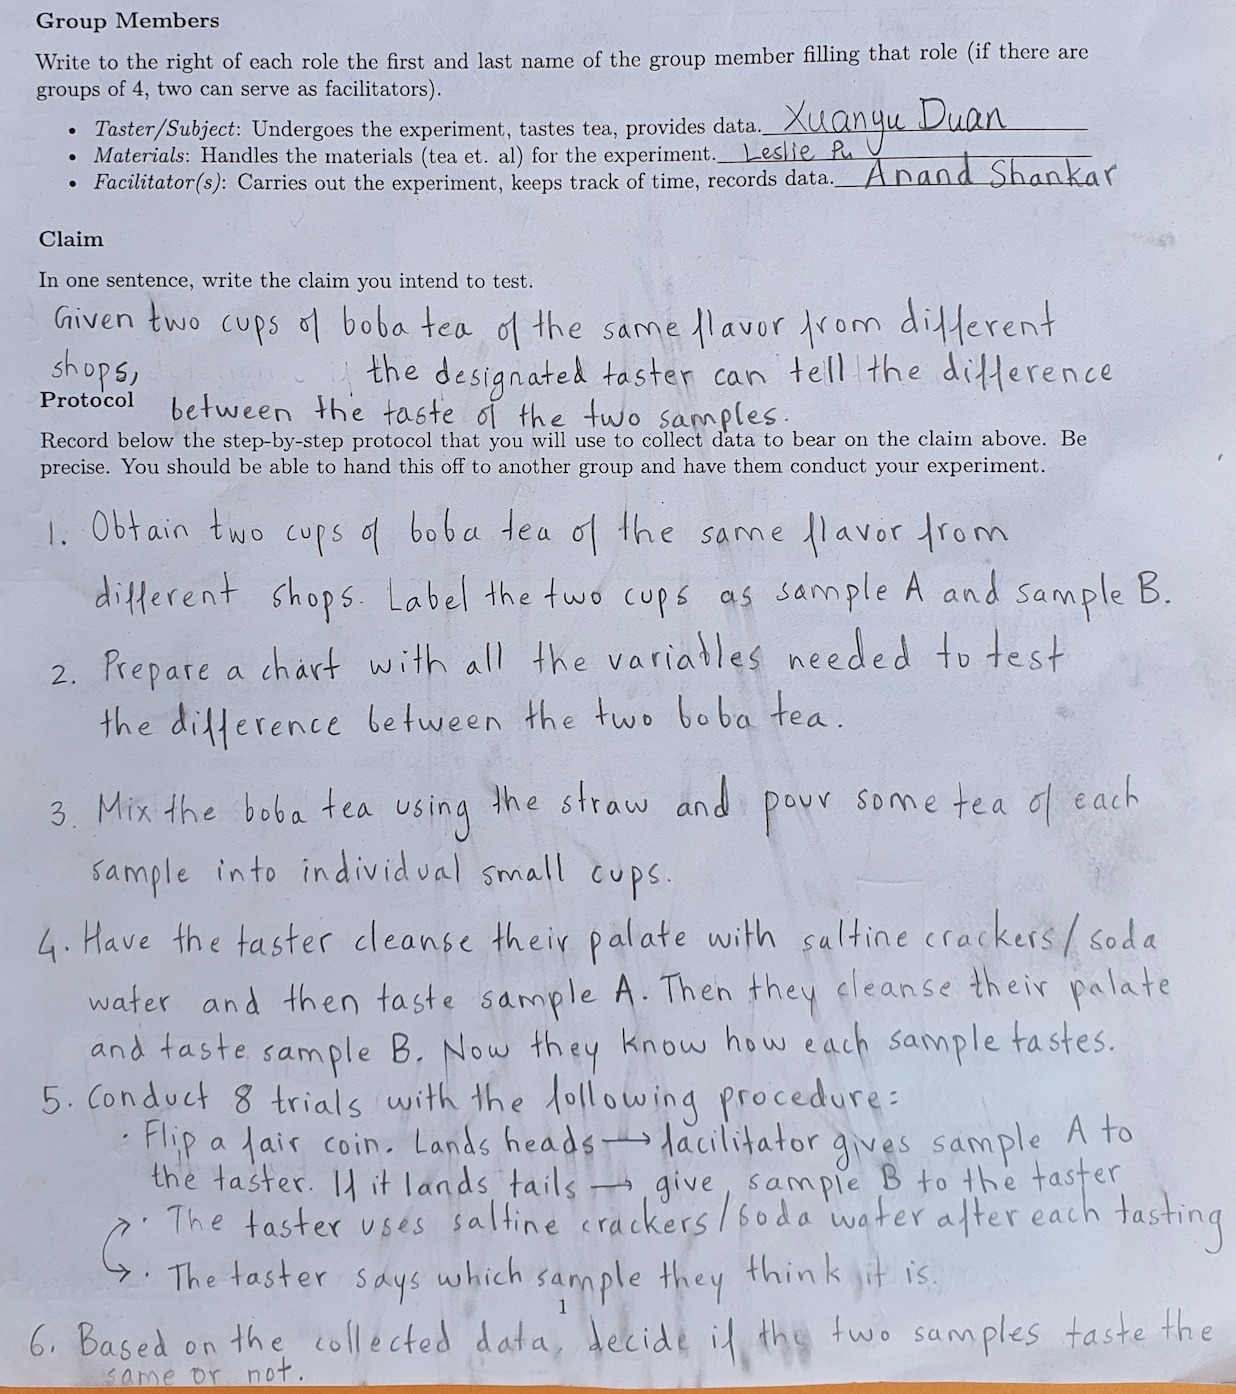 Group Members
Write to the right of each role the first and last name of the group member filling that role (if there are
groups of 4, two can serve as facilitators).
• Taster/Subject: Undergoes the experiment, tastes tea, provides data. Xuanyu Duan
• Materials: Handles the materials (tea et. al) for the experiment. Leslie Pu
• Facilitator(s): Carries out the experiment, keeps track of time, records data. Anand Shankar
Claim
In one sentence, write the claim you intend to test.
Given two cups of boba tea of the same flavor from different
shops, the designated taster can tell the difference
between the taste of the two samples.
Protocol
Record below the step-by-step protocol that you will use to collect data to bear on the claim above. Be
precise. You should be able to hand this off to another group and have them conduct your experiment.
1. Obtain two cups of boba tea of the same flavor from
different shops. Label the two cups as sample A and sample B.
2. Prepare a chart with all the variables needed to test
the difference between the two boba tea.
3. Mix the boba tea using the straw and pour some tea of each
sample into individual small cups.
4. Have the taster cleanse their palate with saltine crackers/soda
water and then taste sample A. Then they cleanse their palate
and taste sample B. Now they know how each sample tastes.
5. Conduct 8 trials with the following procedure:
· Flip a fair coin. Lands heads → facilitator gives sample A to
the taster. If it lands tails → give sample B to the taster
· The taster uses saltine crackers/soda water after each tasting
· The taster says which sample they think it is.
1
6. Based on the collected data, decide if the two samples taste the
same or not.